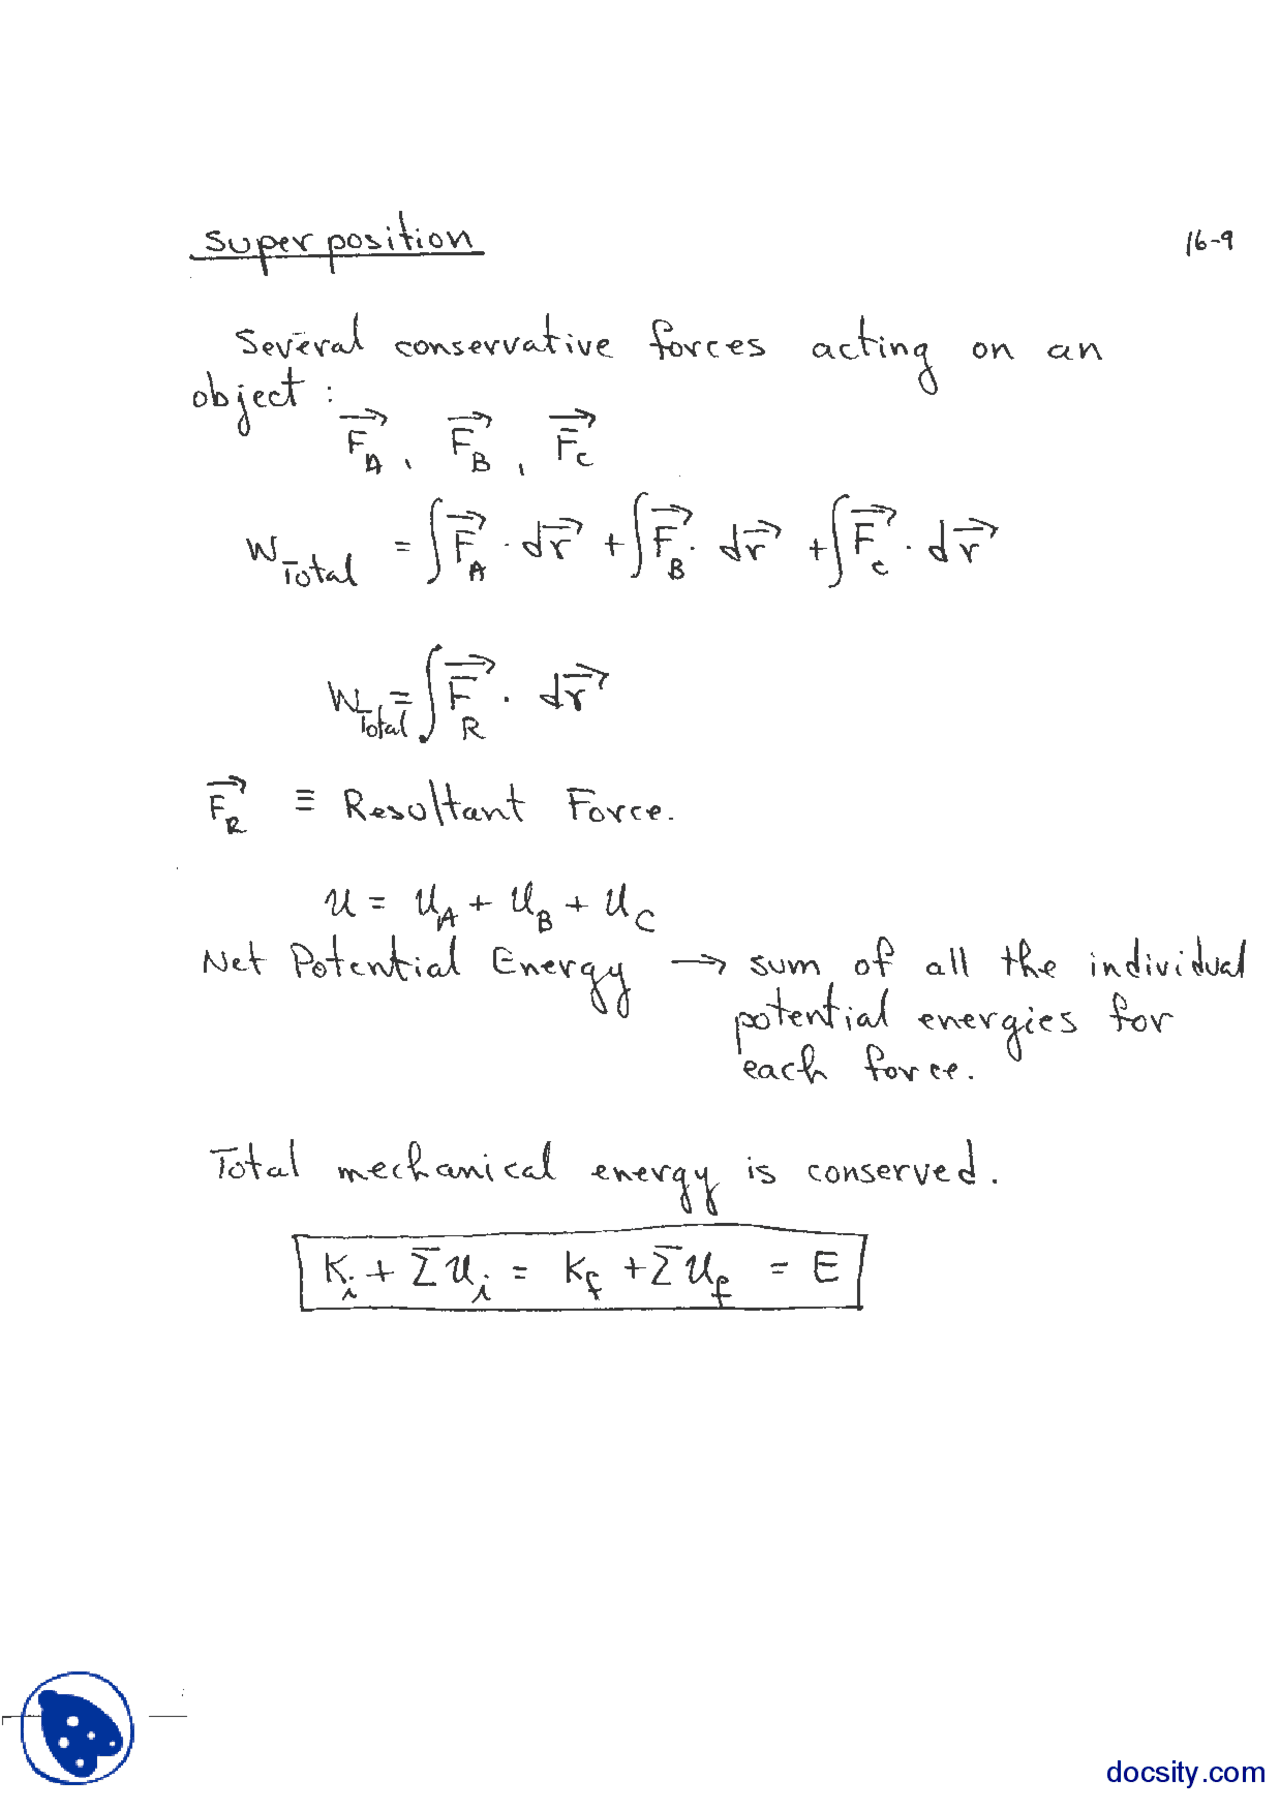 Superposition
16-9
Several conservative forces acting on an
object :
F⃗_A , F⃗_B , F⃗_C
W_Total = ∫F⃗_A · dr⃗ + ∫F⃗_B · dr⃗ + ∫F⃗_C · dr⃗
W_Total = ∫F⃗_R · dr⃗
F⃗_R ≡ Resultant Force.
U = U_A + U_B + U_C
Net Potential Energy → sum of all the individual
potential energies for
each force.
Total mechanical energy is conserved.
K_i + ΣU_i = K_f + ΣU_f = E
docsity.com